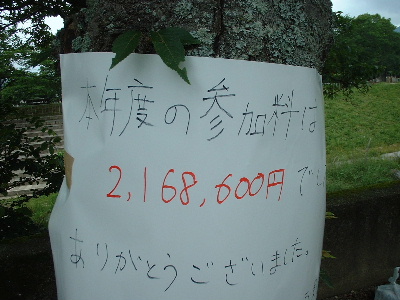 本年度の参加料は
2,168,600円でし
ありがとうございました。